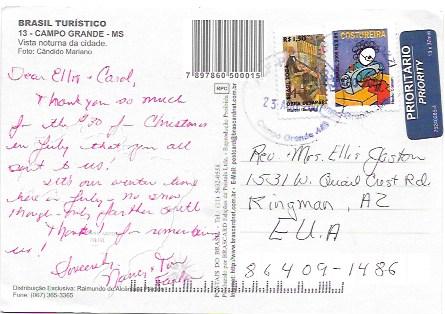 BRASIL TURÍSTICO
13 - CAMPO GRANDE - MS
Vista noturna da cidade.
Foto: Cândido Mariano
7 897860 500015
RPC
Dear Ellis & Carol,
Thank you so much
for the $20 for Christmas
in July that you all
sent to us!
It's our winter time
here in July - no snow,
though - only farther south
Thanks! for remembering
us!
Sincerely,
Distribuição Exclusiva: Raimundo de
Fone: (067) 365-3365
R$ 1,50
COSTUREIRA
Campo Grande
PRIORITÁRIO
PRIORITY
Rev. + Mrs. Ellis
1531 W. Quail Crest Rd.
Kingman, AZ
E.U.A
86409-1486